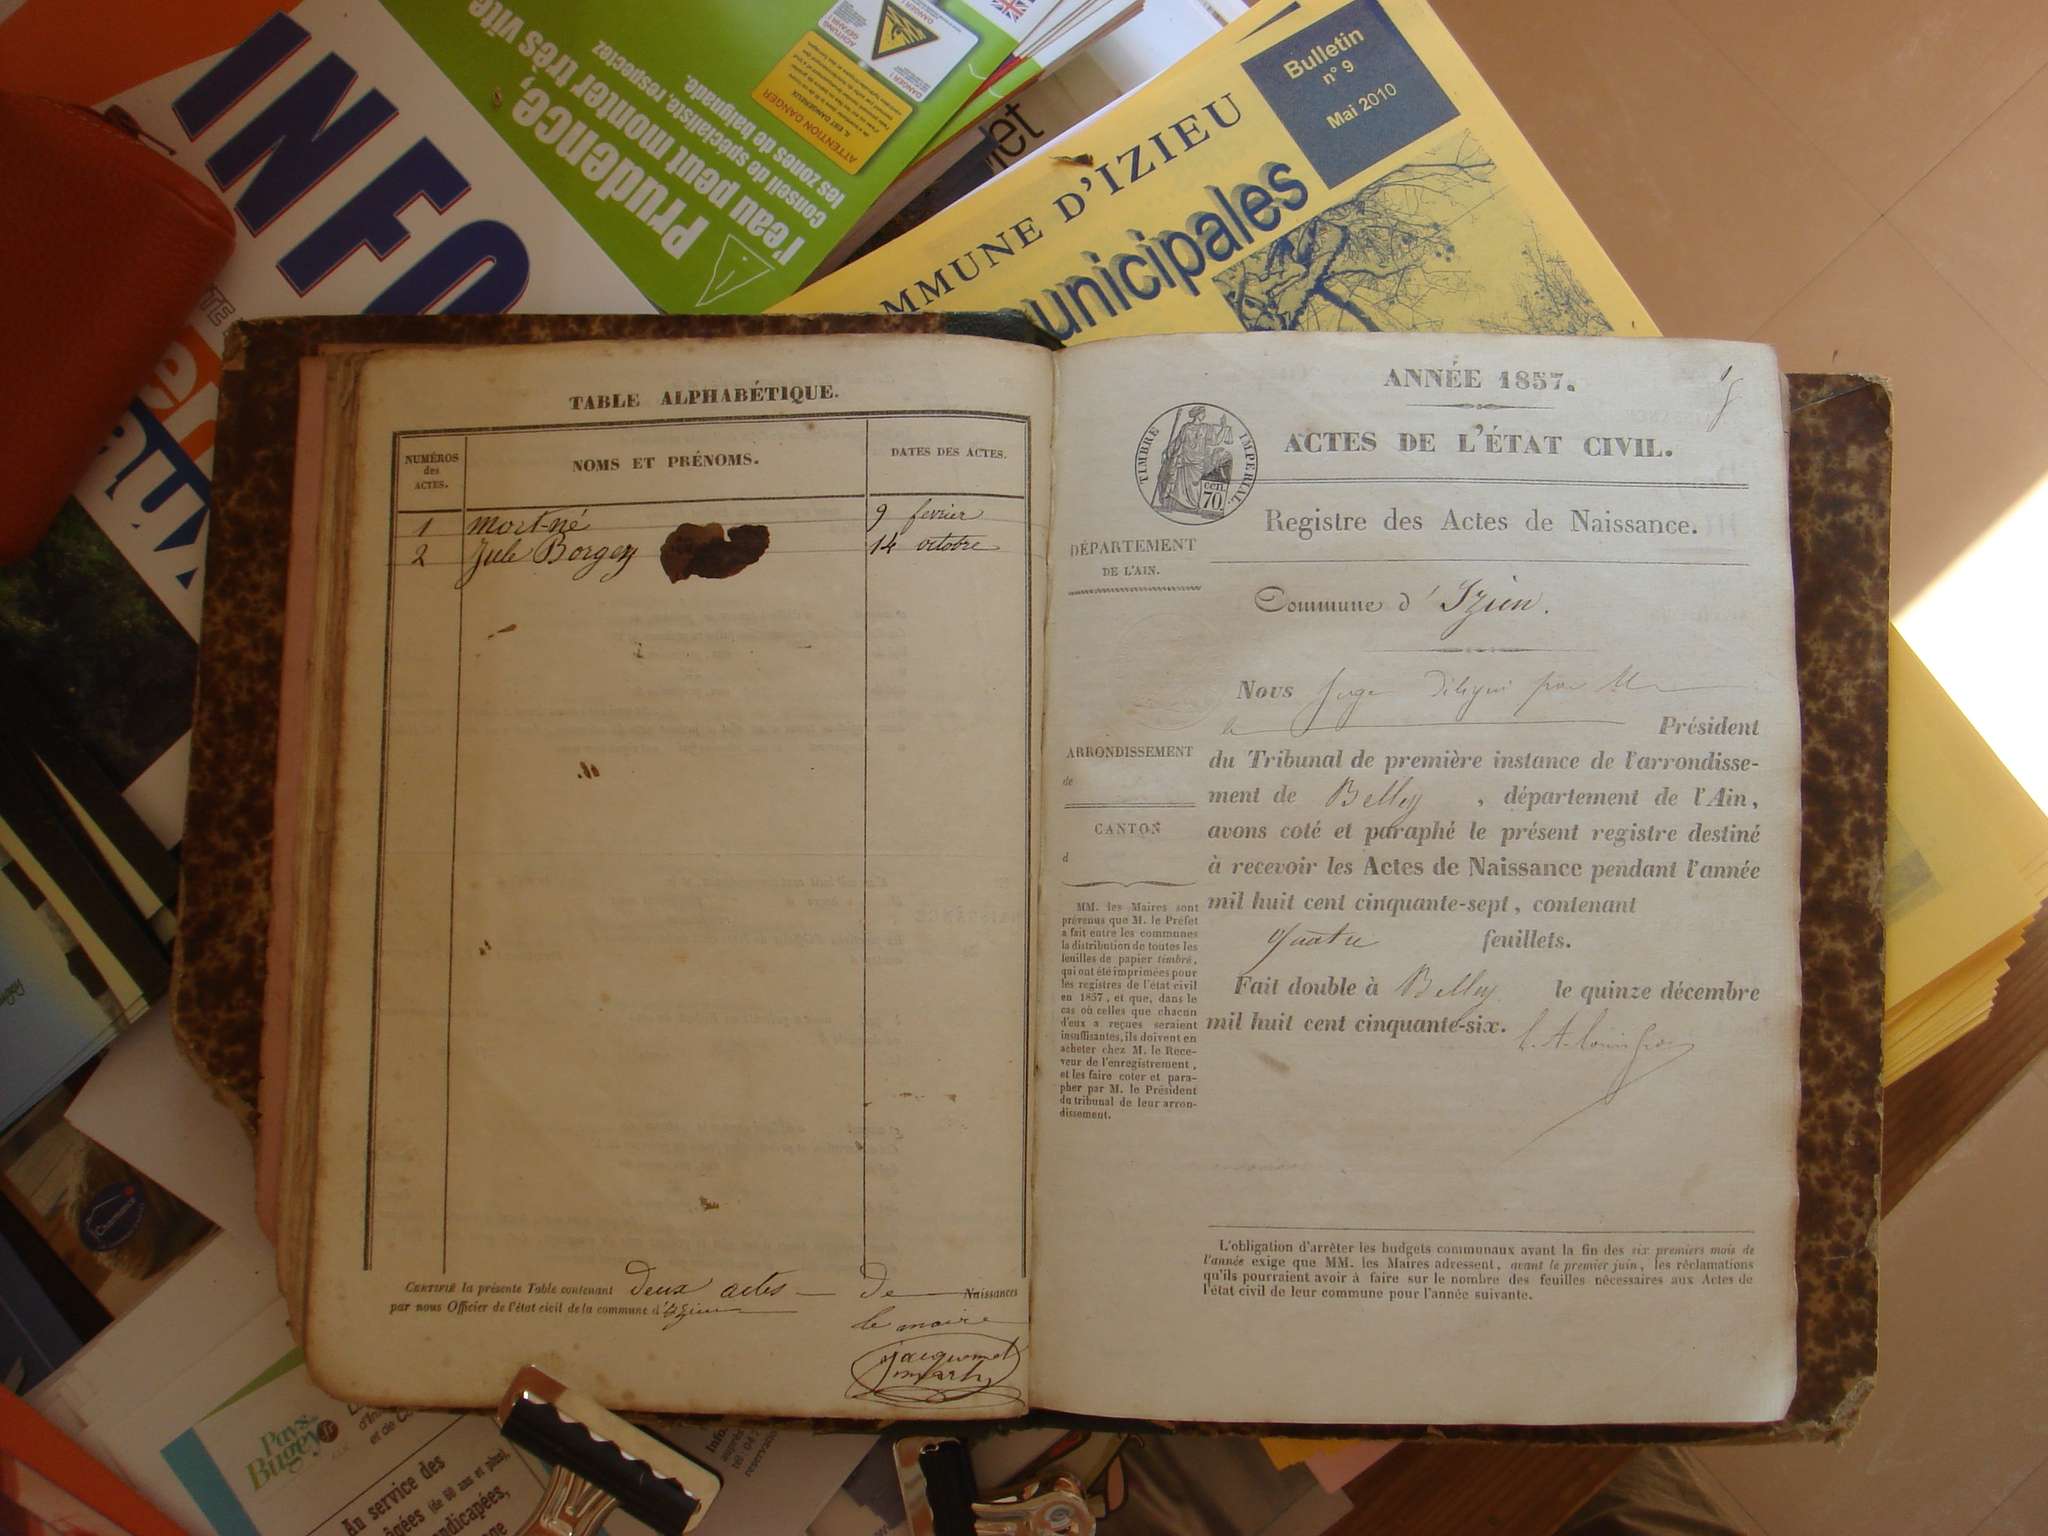 INFO
Prudence,
l'eau peut monter très vite
conseil de spécialiste, respectez
les zones de baignade.
ATTENTION DANGER
DANGER !
Bulletin
n° 9
Mai 2010
MMUNE D'IZIEU
unicipales
TABLE ALPHABÉTIQUE.
NUMÉROS des ACTES. NOMS ET PRÉNOMS. DATES DES ACTES.
1 Mort-né 9 fevrier
2 Jule Borgey 14 octobre
CERTIFIÉ la présente Table contenant deux actes de Naissances
par nous Officier de l'état civil de la commune d'Izieu
le maire
jacquemet
ANNÉE 1857.
ACTES DE L'ÉTAT CIVIL.
TIMBRE IMPÉRIAL
CEN. 70.
Registre des Actes de Naissance.
DÉPARTEMENT
DE L'AIN.
Commune d'Izieu.
Nous Juge délégué par Mr
le Président
ARRONDISSEMENT
de
CANTON
d
du Tribunal de première instance de l'arrondisse-
ment de Belley, département de l'Ain,
avons coté et paraphé le présent registre destiné
à recevoir les Actes de Naissance pendant l'année
mil huit cent cinquante-sept, contenant
quatre feuillets.
Fait double à Belley le quinze décembre
mil huit cent cinquante-six.
MM. les Maires sont
prévenus que M. le Préfet
a fait entre les communes
la distribution de toutes les
feuilles de papier timbré,
qui ont été imprimées pour
les registres de l'état civil
en 1857, et que, dans le
cas où celles que chacun
d'eux a reçues seraient
insuffisantes, ils doivent en
acheter chez M. le Rece-
veur de l'enregistrement,
et les faire coter et para-
pher par M. le Président
du tribunal de leur arron-
dissement.
L'obligation d'arrêter les budgets communaux avant la fin des six premiers mois de
l'année exige que MM. les Maires adressent, avant le premier juin, les réclamations
qu'ils pourraient avoir à faire sur le nombre des feuilles nécessaires aux Actes de
l'état civil de leur commune pour l'année suivante.
Pays
Bugey
Au service des
âgées (de 60 ans et plus),